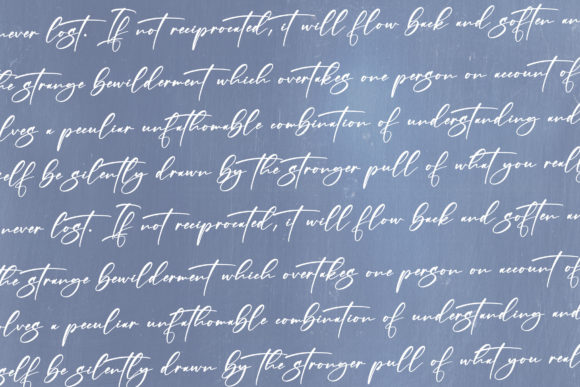 never lost. If not reciprocated, it will flow back and soften an
the strange bewilderment which overtakes one person on account of
lves a peculiar unfathomable combination of understanding and
self be silently drawn by the stronger pull of what you reall
never lost. If not reciprocated, it will flow back and soften an
the strange bewilderment which overtakes one person on account of
olves a peculiar unfathomable combination of understanding and
self be silently drawn by the stronger pull of what you reall